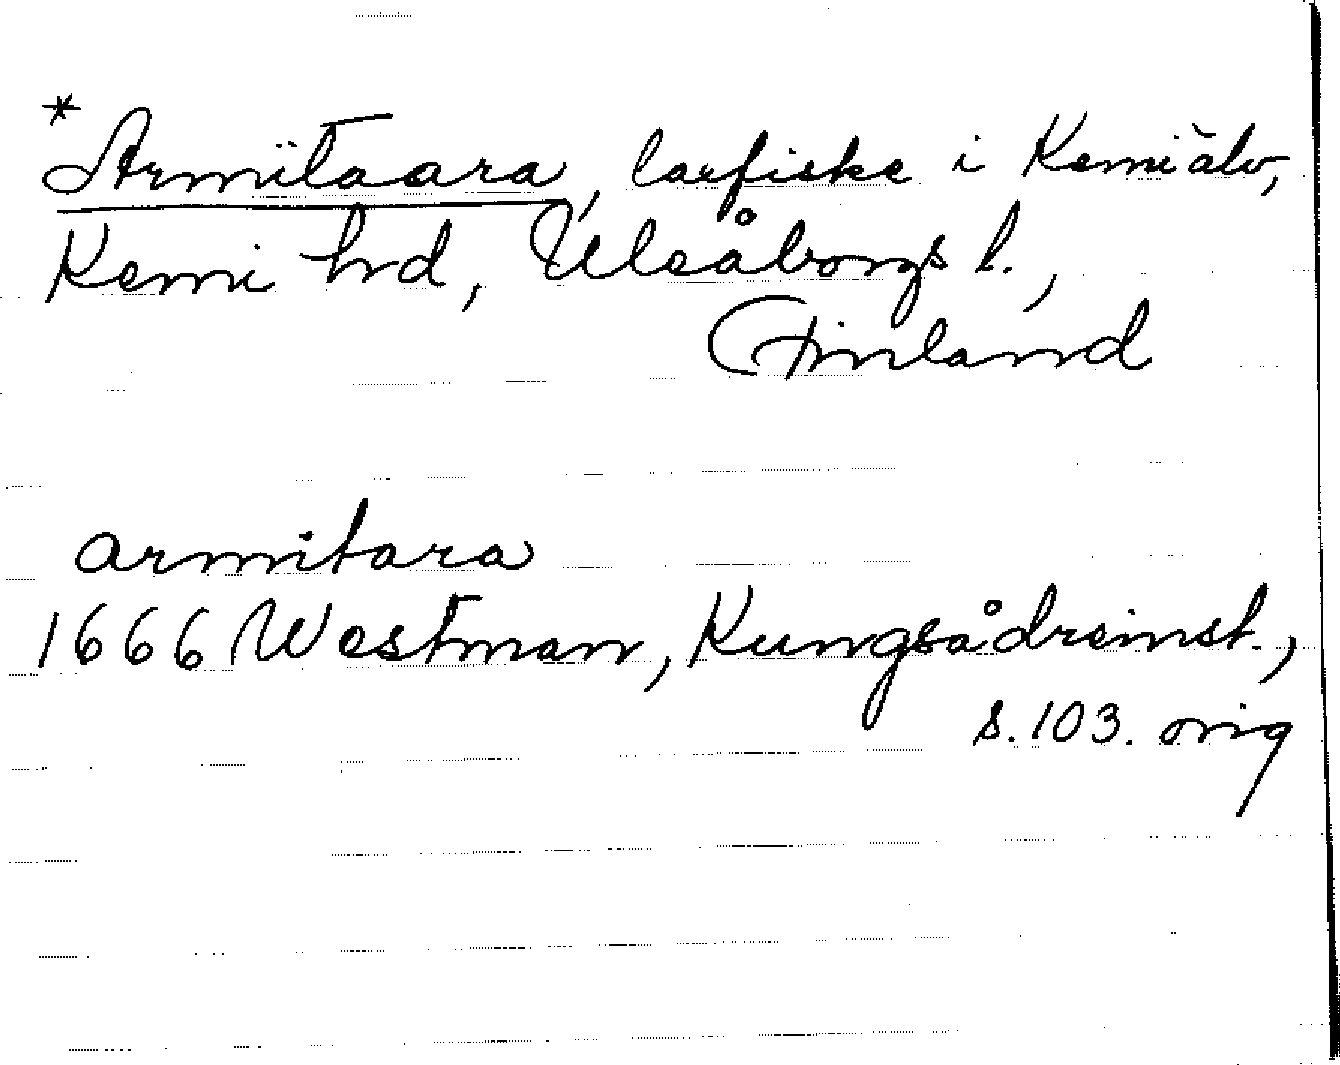 *
Armitaara, laxfiske i Kemi älv,
Kemi hrd, Uleåborgs l.,
Finland
armitara
1666 Westman, Kungsådreinst.,
s. 103. orig